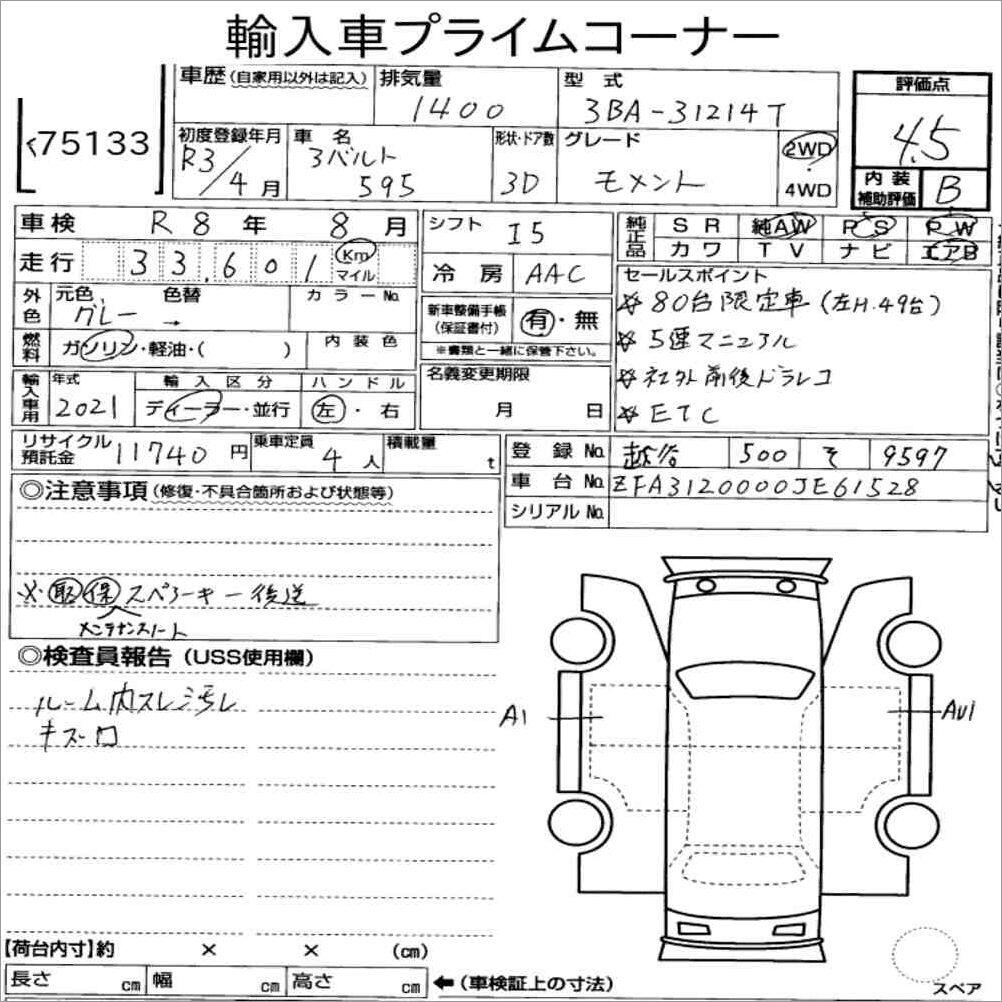 輸入車プライムコーナー
75133
車歴(自家用以外は記入)
排気量 1400
型式 3BA-31214T
評価点 4.5
内装補助評価 B
初度登録年月 R3/4月
車名 アバルト 595
形状・ドア数 3D
グレード モメント
2WD
4WD
車検 R8年 8月
シフト I5
純正品 SR 純AW PS PW
カワ TV ナビ エアB
走行 33,601 Km マイル
冷房 AAC
セールスポイント
☆80台限定車(左H.49台)
☆5速マニュアル
☆社外前後ドラレコ
☆ETC
外色 元色 グレー → 色替 カラーNo.
新車整備手帳(保証書付) 有・無
※書類と一緒に保管下さい。
燃料 ガソリン・軽油・( ) 内装色
名義変更期限 月 日
輸入車用 年式 2021 輸入区分 ディーラー・並行 ハンドル 左・右
リサイクル預託金 11740円 乗車定員 4人 積載量 t
登録No. 越谷 500 そ 9597
車台No. ZFA3120000JE61528
シリアルNo.
◎注意事項(修復・不具合箇所および状態等)
※取保スペアーキー後送
メンテナンスノート
◎検査員報告(USS使用欄)
ルーム内スレ汚レ
キズ
A1
AU1
【荷台内寸】約 × × (cm)
長さ cm 幅 cm 高さ cm ←(車検証上の寸法)
スペア